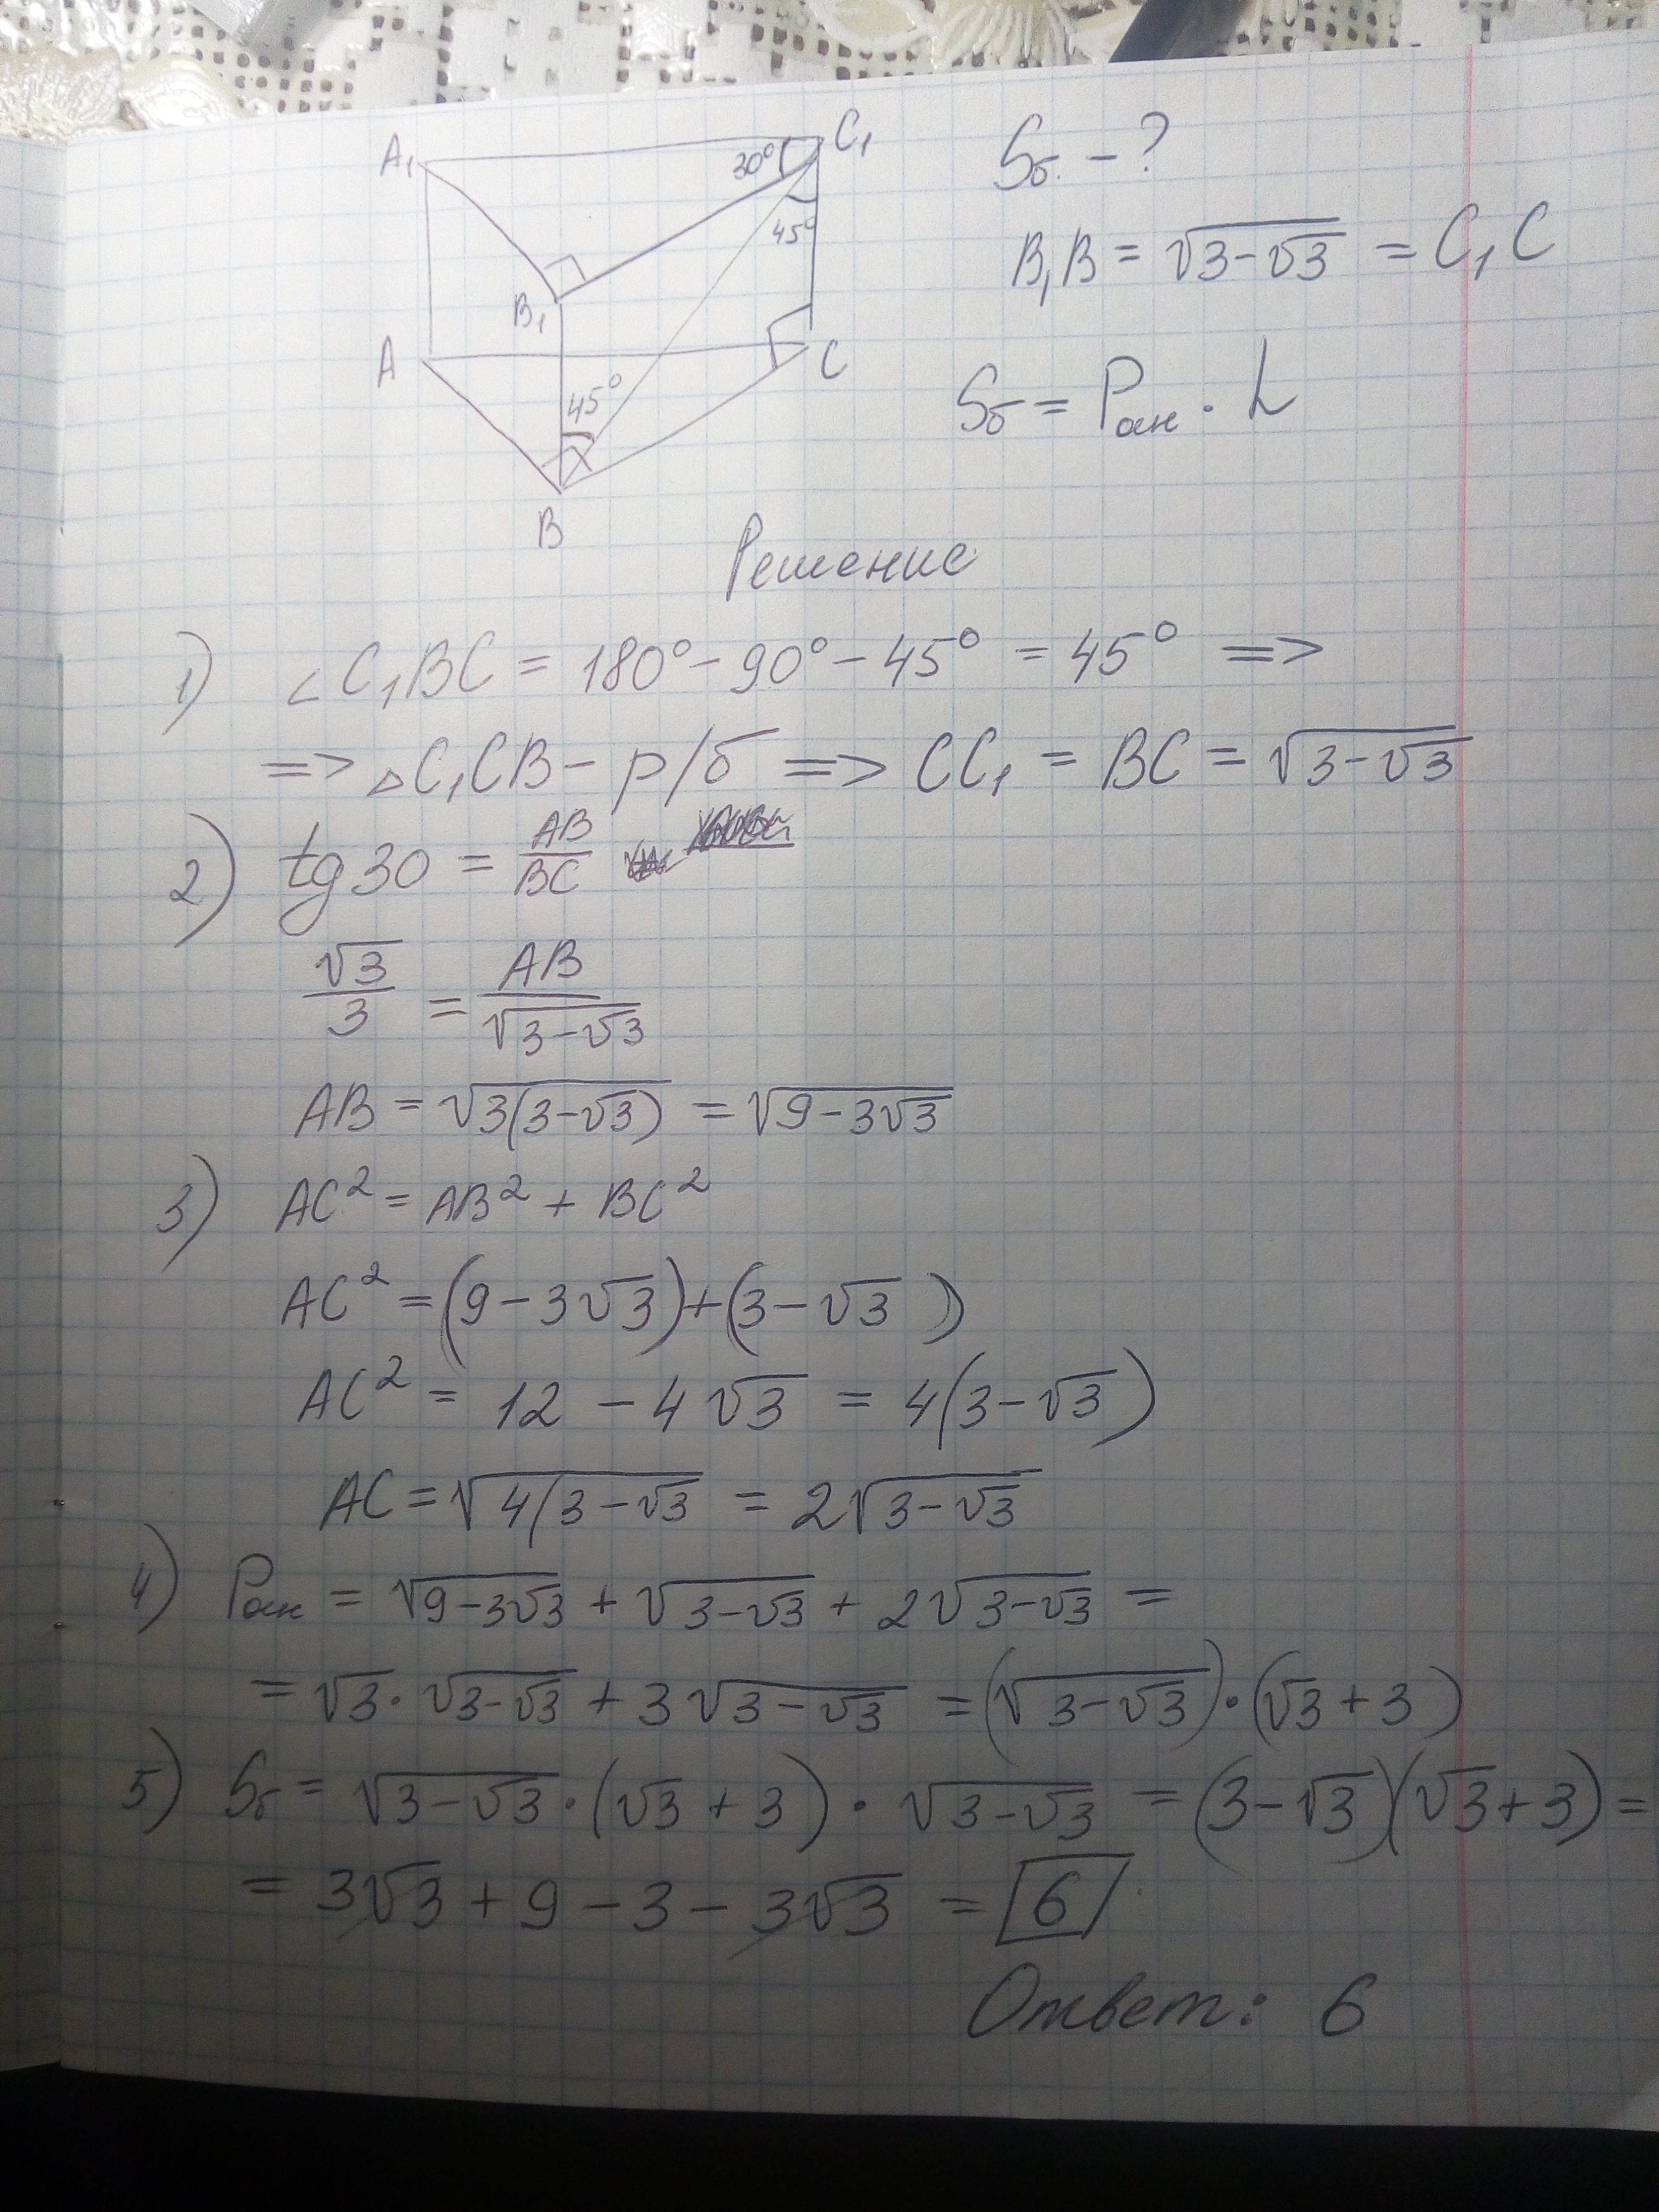 A₁
C₁
30°
45°
B₁
A
C
45°
B
Sб. - ?
B₁B = √(3-√3) = C₁C
Sб = Pосн · h
Решение
1) ∠C₁BC = 180° - 90° - 45° = 45° =>
=> △C₁CB - р/б => CC₁ = BC = √(3-√3)
2) tg30 = AB/BC
√3/3 = AB/√(3-√3)
AB = √(3(3-√3)) = √(9-3√3)
3) AC² = AB² + BC²
AC² = (9-3√3)+(3-√3)
AC² = 12 - 4√3 = 4(3-√3)
AC = √(4(3-√3) = 2√(3-√3)
4) Pосн = √(9-3√3) + √(3-√3) + 2√(3-√3) =
= √3·√(3-√3) + 3√(3-√3) = (√(3-√3))·(√3+3)
5) Sб = √(3-√3)·(√3+3)·√(3-√3) = (3-√3)(√3+3) =
= 3√3 + 9 - 3 - 3√3 = 6
Ответ: 6